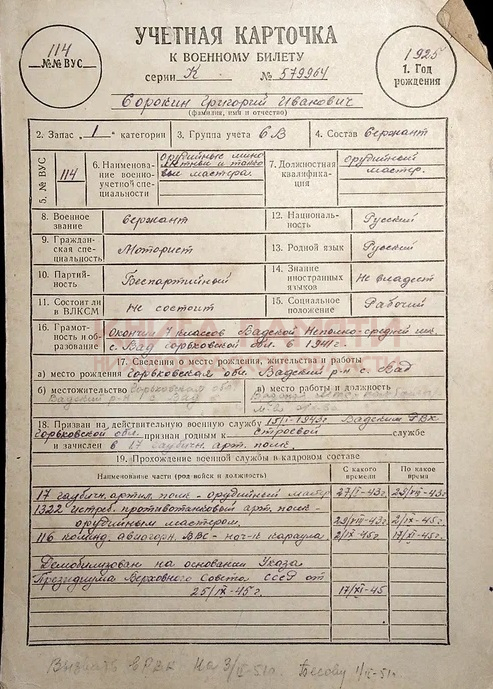 114
№№ ВУС
УЧЕТНАЯ КАРТОЧКА
К ВОЕННОМУ БИЛЕТУ
серии К № 579964
1925
1. Год рождения
Сорокин Григорий Иванович
(фамилия, имя и отчество)
2. Запас 1 категории
3. Группа учета СВ
4. Состав сержант
5. № ВУС
114
6. Наименование военно-учетной специальности
орудийные мино
и
вые мастера
7. Должностная квалификация
орудийный
мастер.
8. Военное звание
сержант
12. Национальность
Русский
9. Гражданская специальность
Моторист
13. Родной язык
Русский
10. Партийность
Беспартийный
14. Знание иностранных языков
Не владеет
11. Состоит ли в ВЛКСМ
Не состоит
15. Социальное положение
Рабочий
16. Грамотность и образование
Окончил 7 классов Вадской Неполно-средней шк.
с. Вад Горьковской обл. в 1941 г.
17. Сведения о месте рождения, жительства и работы
а) место рождения Горьковская обл. Вадский р-н с. Вад
б) местожительство Горьковская обл.
Вадский р-н с. Вад
в) место работы и должность
18. Призван на действительную военную службу 15/I-1943г. Вадским РВК
Горьковской обл. признан годным к строевой службе
и зачислен в 17 арт. полк
19. Прохождение военной службы в кадровом составе
Наименование части (род войск и должность)
С какого времени
По какое время
17 артил. полк - орудийный мастер
1322 истреб. противотанковый арт. полк -
орудийным мастером.
116 ВВС - нач-к караула
Демобилизован на основании Указа
Президиума Верховного Совета СССР от
25/IX-45г.
17/XI-45
Вызвать в РВК на 3/